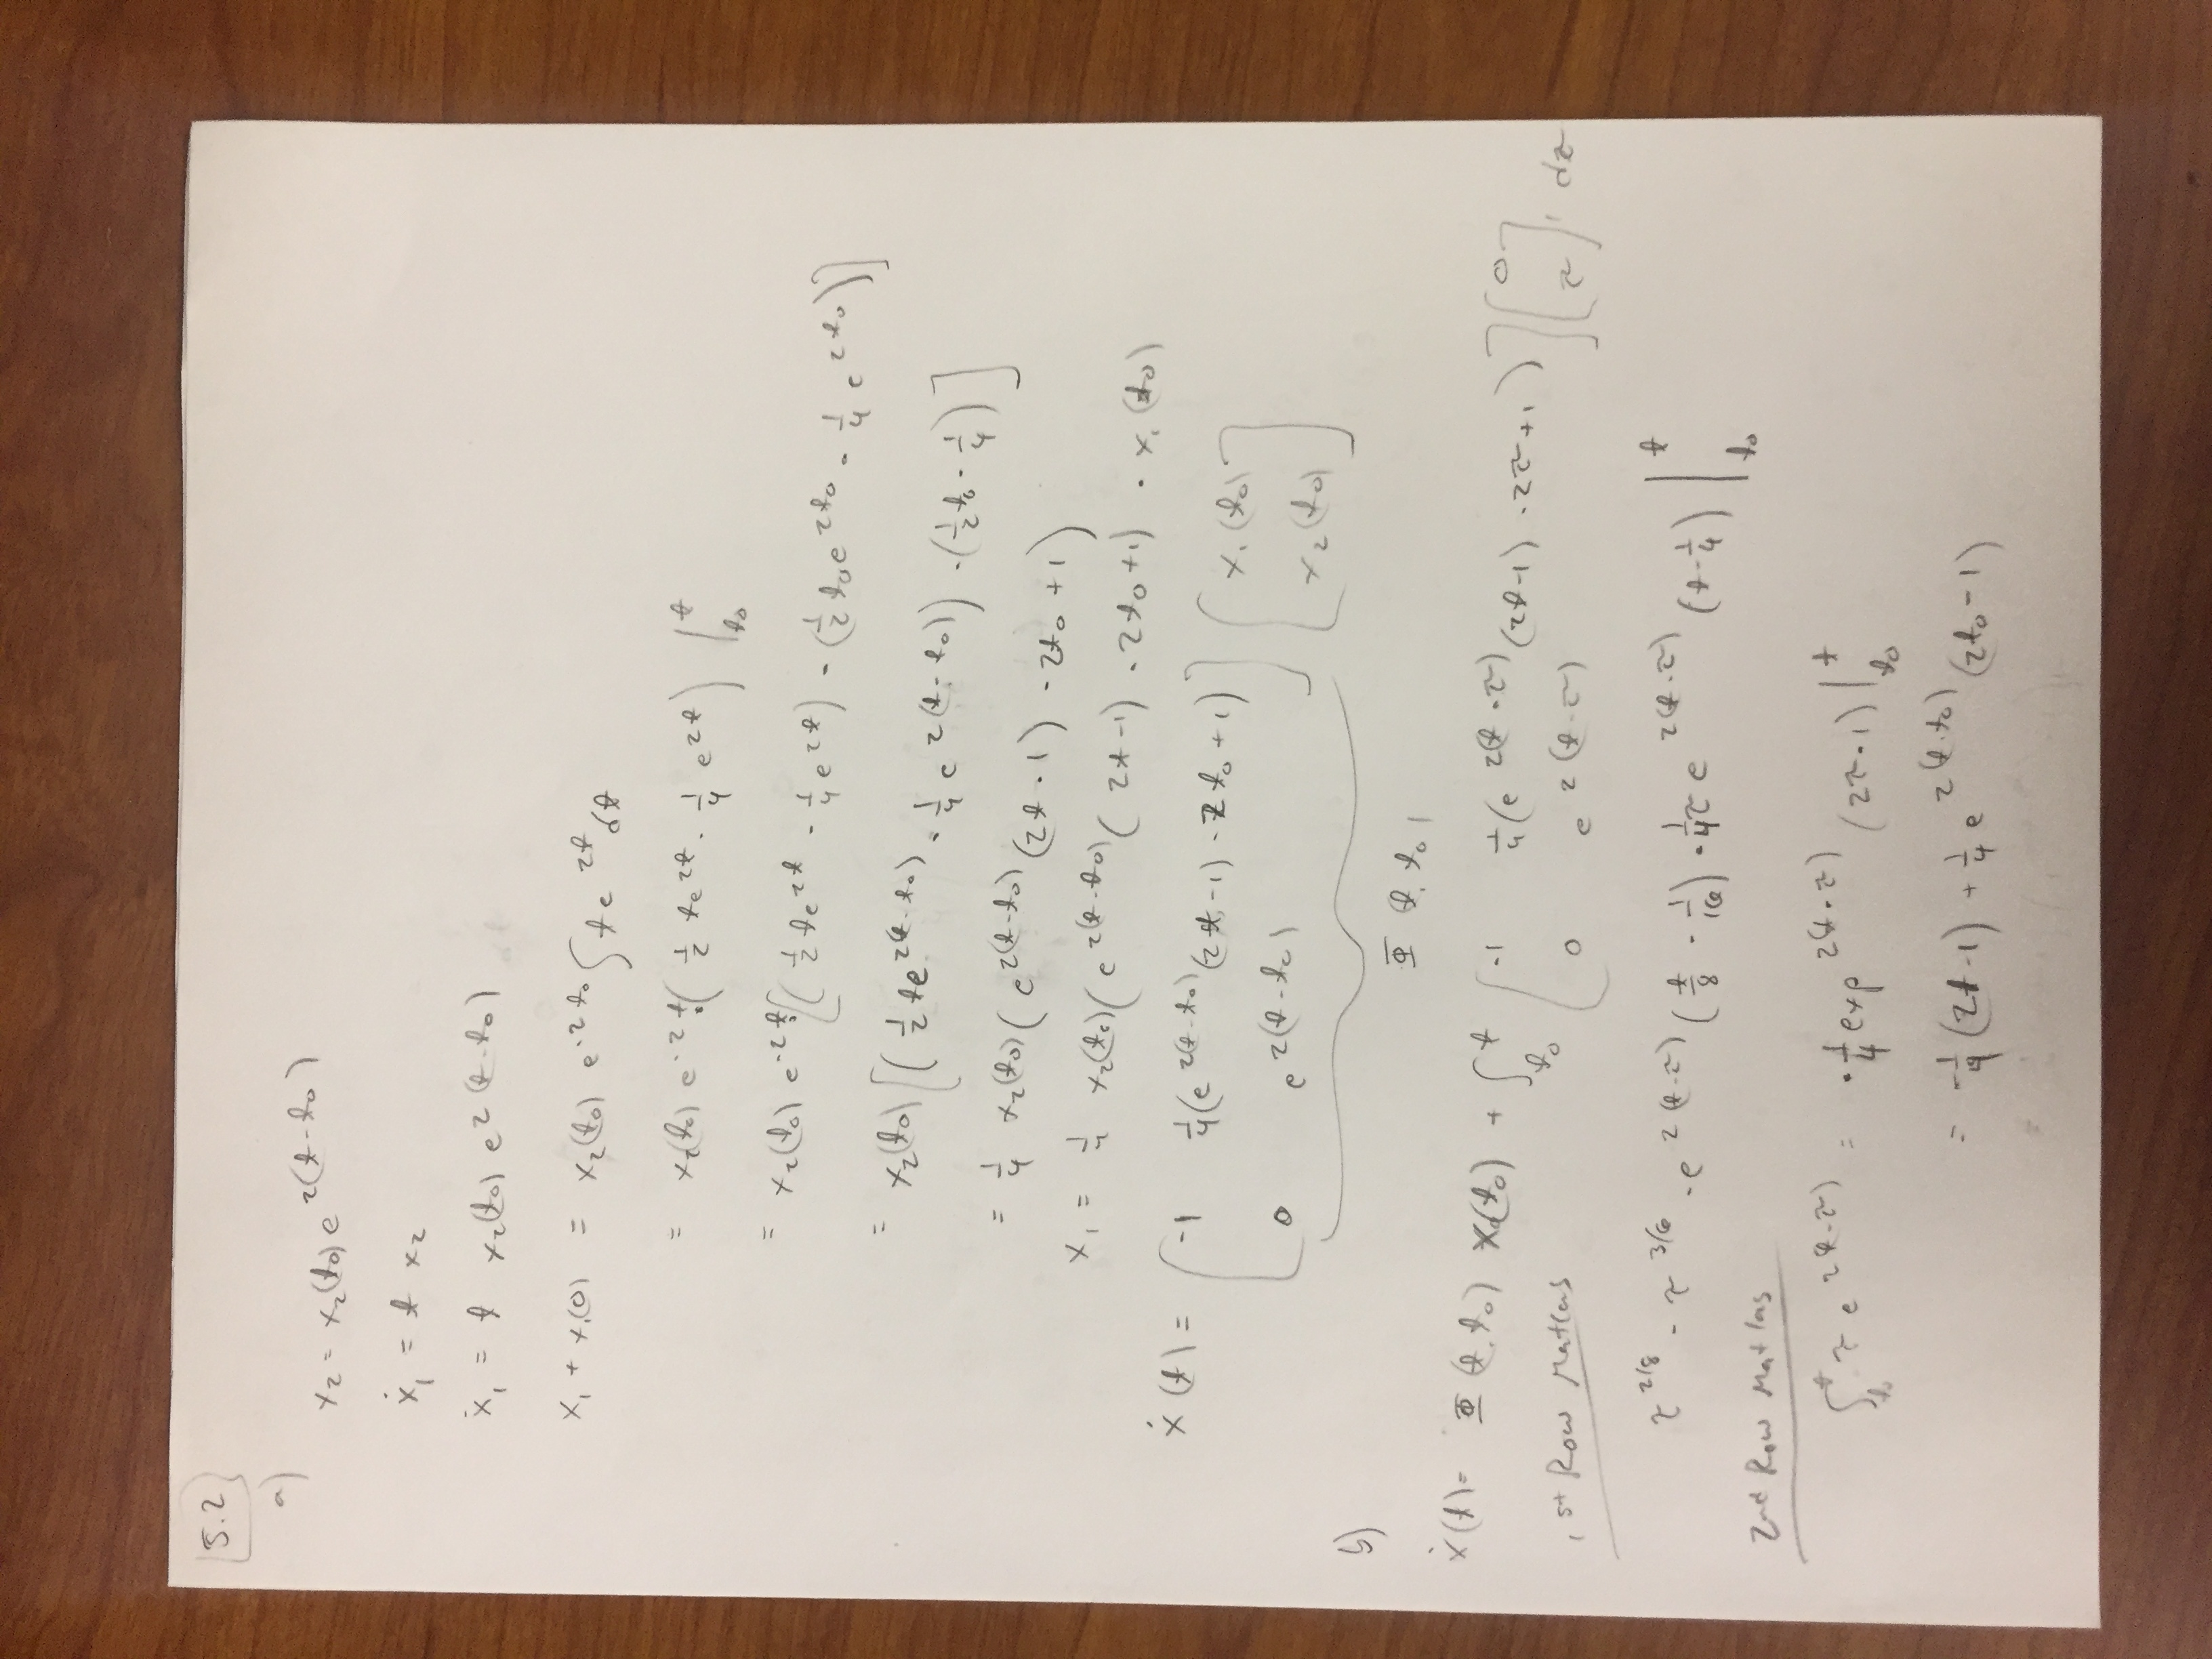 5.2
a)
x₂ = x₂(t₀) e^{2(t-t₀)}
ẋ₁ = t x₂
ẋ₁ = t x₂(t₀) e^{2(t-t₀)}
x₁ + x₁(0) = x₂(t₀) e^{-2t₀} ∫ t e^{2t} dt
= x₂(t₀) e^{-2t₀} ( 1/2 t e^{2t} - 1/4 e^{2t} ) |_{t₀}^{t}
= x₂(t₀) e^{-2t₀} [ ( 1/2 t e^{2t} - 1/4 e^{2t} ) - ( 1/2 t₀ e^{2t₀} - 1/4 e^{2t₀} ) ]
= x₂(t₀) [ ( 1/2 t e^{2(t-t₀)} - 1/4 e^{2(t-t₀)} ) - ( 1/2 t₀ - 1/4 ) ]
= 1/4 x₂(t₀) ( e^{2(t-t₀)} (2t - 1) - 2t₀ + 1 )
x₁ = 1/4 x₂(t₀) ( e^{2(t-t₀)} ( 2t - 1) - 2t₀ + 1 ) - x₁(t₀)
ẋ(t) = [ -1 1/4 ( e^{2(t-t₀)} (2t - 1) - 2t₀ + 1 ) ] [ x₁(t₀) ]
[ 0 e^{2(t-t₀)} ] [ x₂(t₀) ]
b)
Φ(t, t₀)
ẋ(t) = Φ(t, t₀) x(t₀) + ∫_{t₀}^{t} [ -1 1/4 ( e^{2(t-τ)} (2t-1) - 2τ + 1 ) ] [ 0 ]
1st Row Matlab [ 0 e^{2(t-τ)} ] [ τ ] dτ
τ^{2/8} - τ^{3/6} - e^{2(t-τ)} ( t/8 - 1/16 ) - 1/4 τ e^{2(t-τ)} ( t - 1/4 ) |_{t₀}^{t}
2nd Row Matlab
∫_{t₀}^{t} τ e^{2(t-τ)} = -1/4 exp^{2(t-τ)} (2τ - 1) |_{t₀}^{t}
= -1/4 (2t - 1) + 1/4 e^{2(t-t₀)} (2t₀ - 1)